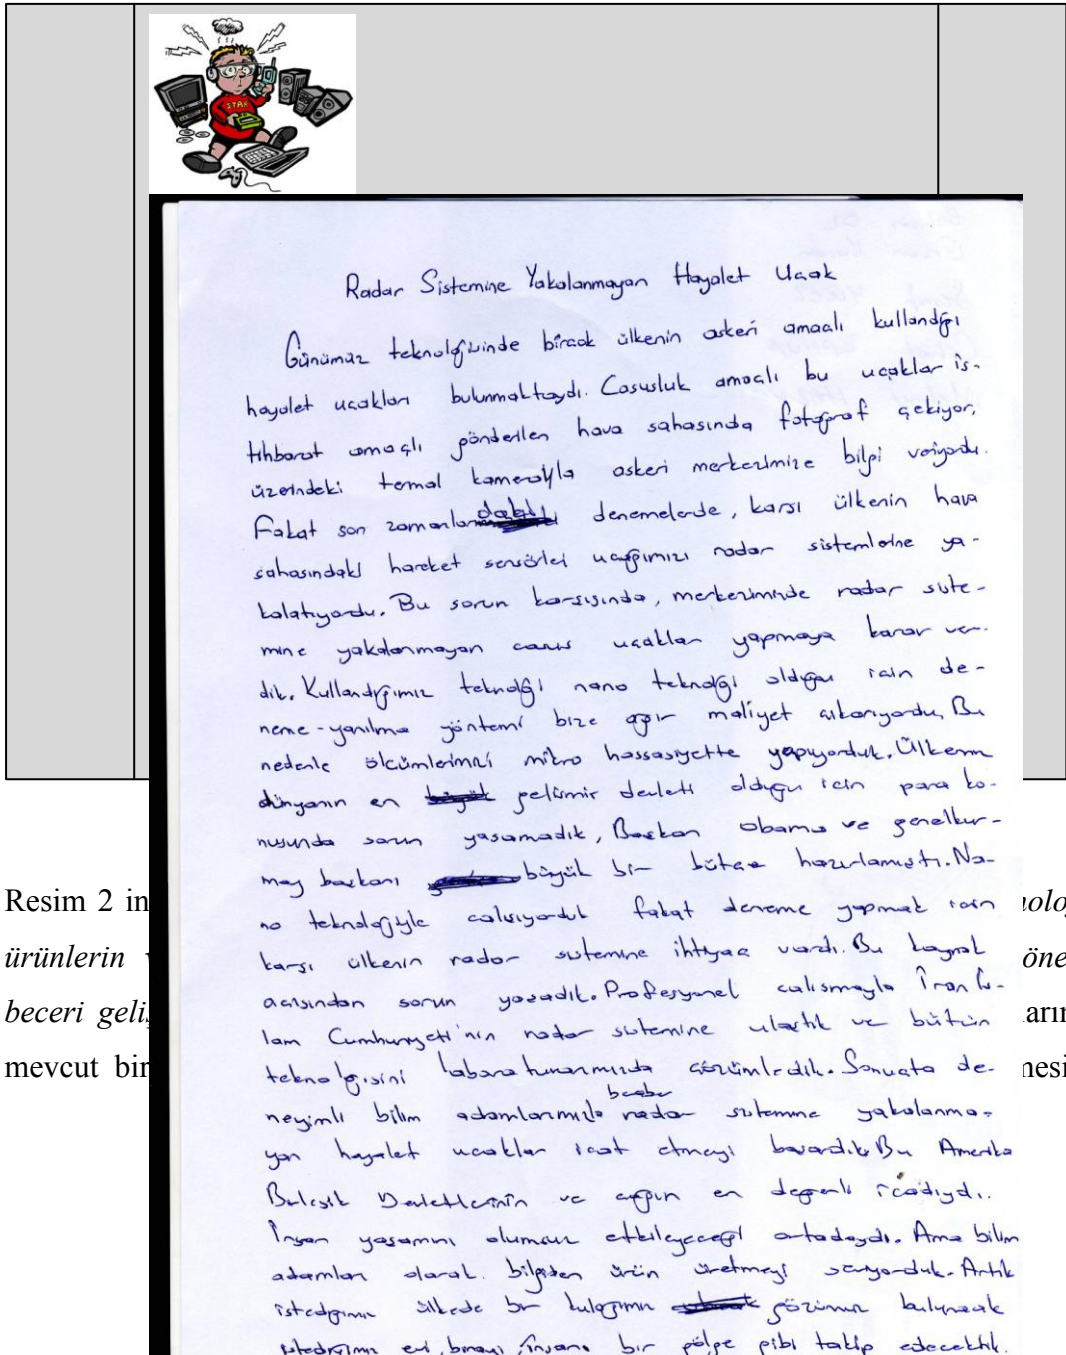 STAR
Radar Sistemine Yakalanmayan Hayalet Uçak
Günümüz teknolojisinde birçok ülkenin askeri amaçlı kullandığı
hayalet uçakları bulunmaktaydı. Casusluk amaçlı bu uçaklar is-
tihbarat amaçlı gönderilen hava sahasında fotoğraf çekiyor,
üzerindeki termal kamerayla askeri merkezimize bilgi veriyordu.
Fakat son zamanlardaki denemelerde, karşı ülkenin hava
sahasındaki hareket sensörleri uçağımızı radar sistemlerine ya-
kalatıyordu. Bu sorun karşısında, merkezimizde radar siste-
mine yakalanmayan casus uçakları yapmaya karar ver-
dik. Kullandığımız teknoloji nano teknoloji olduğu için de-
neme-yanılma yöntemi bize ağır maliyet çıkarıyordu. Bu
nedenle ölçümlerimizi mikro hassasiyette yapıyorduk. Ülkemiz
dünyanın en gelişmiş devleti olduğu için para ko-
nusunda sorun yaşamadık, Başkan Obama ve genelkur-
may başkanı büyük bir bütçe hazırlamıştı. Na-
no teknolojiyle çalışıyorduk fakat deneme yapmak için
karşı ülkenin radar sistemine ihtiyaç vardı. Bu kaynak
açısından sorun yaşadık. Profesyonel çalışmayla İran İs-
lam Cumhuriyeti'nin radar sistemine ulaştık ve bütün
teknolojisini labaratuvarımızda çözümledik. Sonuçta de-
neyimli bilim adamlarımızla beraber radar sistemine yakalanma-
yan hayalet uçaklar icat etmeyi başardık. Bu Amerika
Birleşik Devletlerinin ve çağın en değerli icadıydı.
İnsan yaşamını olumsuz etkileyeceği ortadaydı. Ama bilim
adamları olarak bilgiden ürün üretmeyi seviyorduk. Artık
istediğimiz ülkede bir kulağımız gözümüz bulunacak
istediğimiz evi, binayı, insanı bir gölge gibi takip edecektik.
Resim 2 in
ürünlerin
beceri geliş
mevcut bir